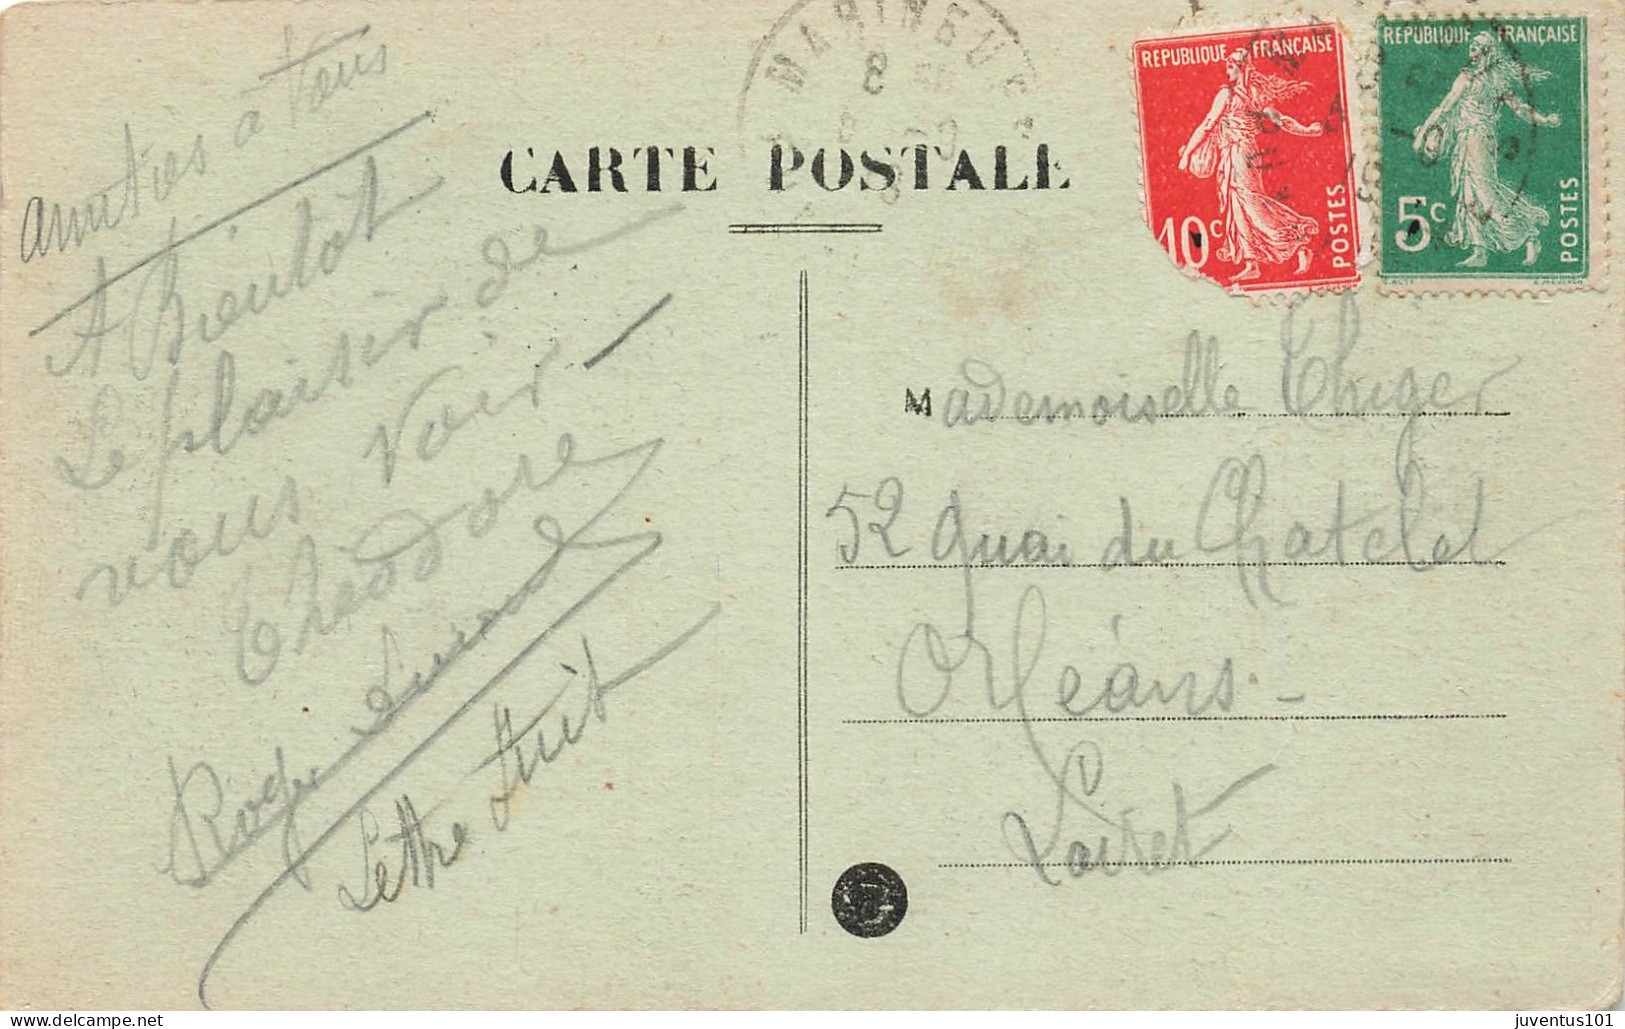 amitiés à tous
A Bientot
Le plaisir de
vous voir
Théodore
Roger
Lettre suit
CARTE POSTALE
MARINGUES
8
RÉPUBLIQUE FRANÇAISE
10c
POSTES
RÉPUBLIQUE FRANÇAISE
5c
POSTES
Mademoiselle Thiger
52 Quai du Chatelet
Orléans
Loiret
juventus101